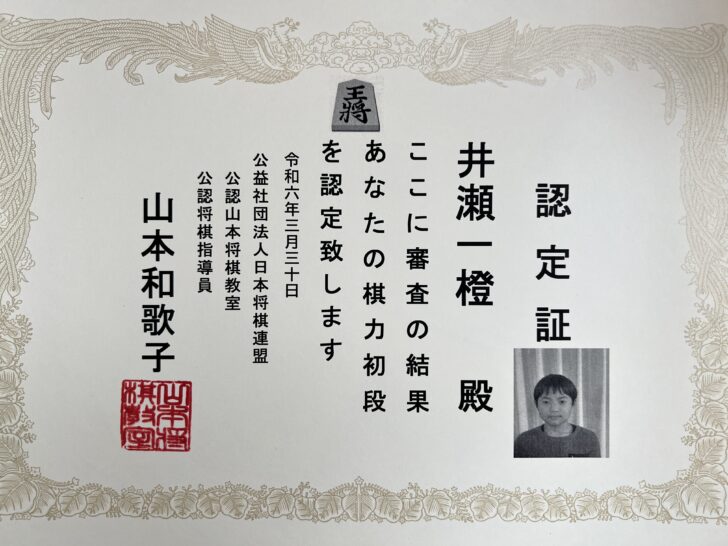 認定証
井瀬一橙 殿
ここに審査の結果
あなたの棋力初段
を認定致します
令和六年三月三十日
公益社団法人日本将棋連盟
公認山本将棋教室
公認将棋指導員
山本和歌子
山本将棋教室
王將